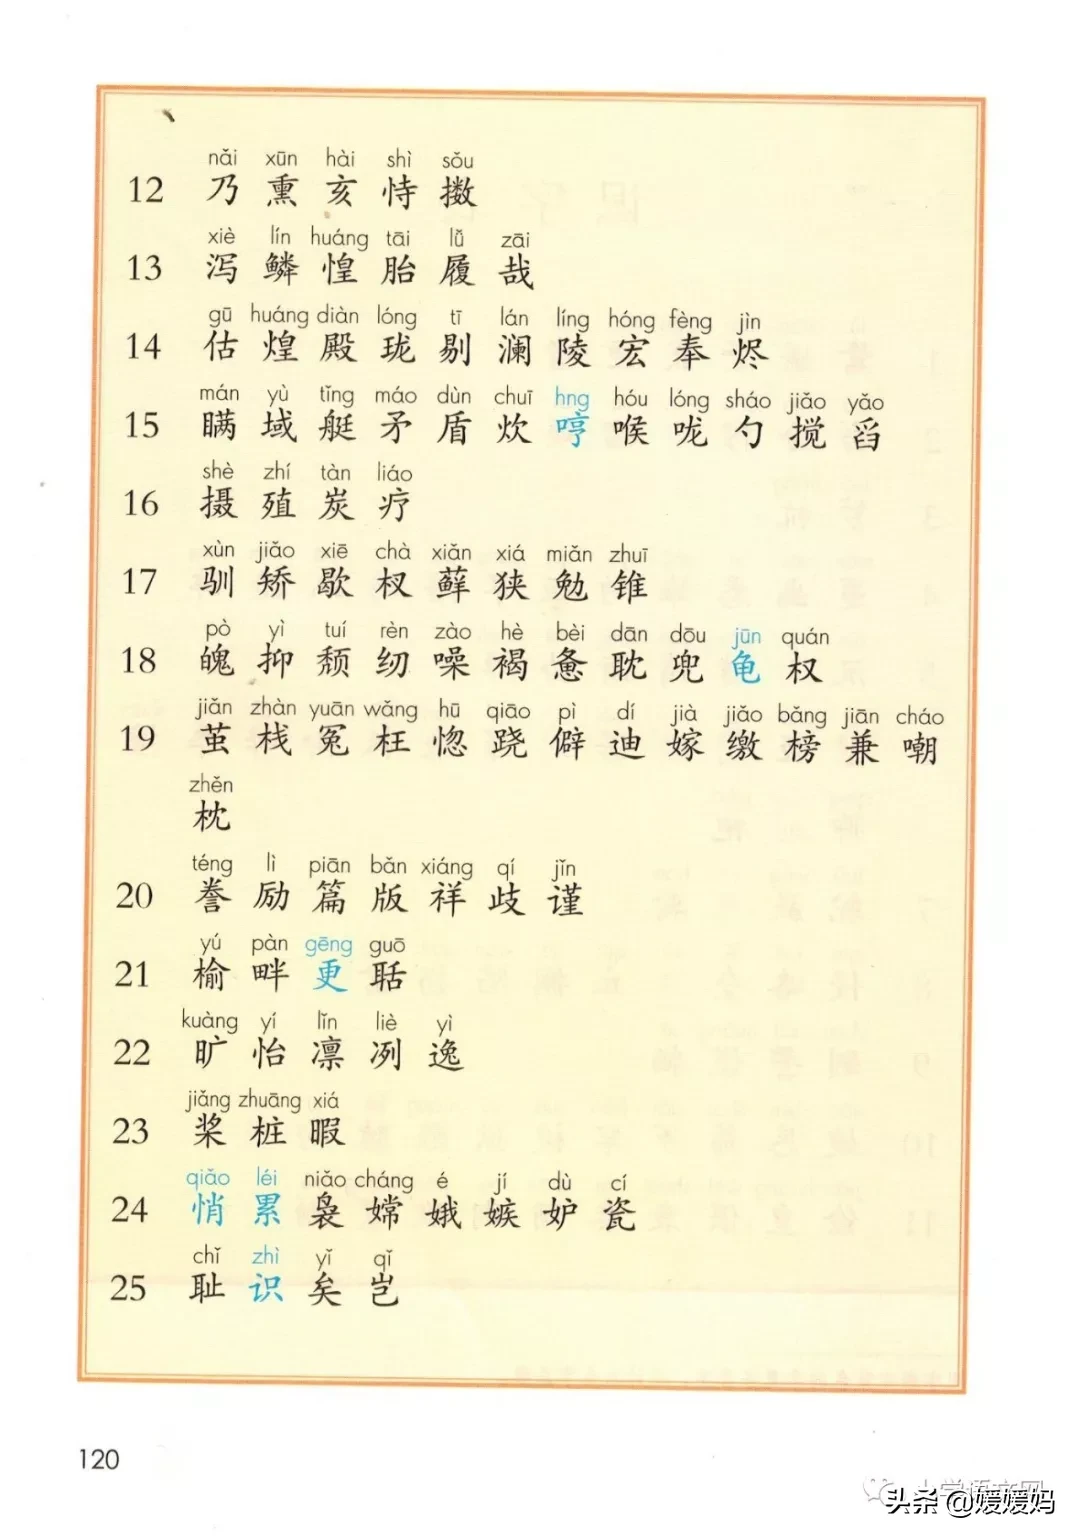 nǎi xūn hài shì sǒu
12 乃 熏 亥 恃 擞
xiè lín huáng tāi lǚ zāi
13 泻 鳞 惶 胎 履 哉
gū huáng diàn lóng tī lán líng hóng fèng jìn
14 估 煌 殿 珑 剔 澜 陵 宏 奉 烬
mán yù tǐng máo dùn chuī hng hóu lóng sháo jiǎo yǎo
15 瞒 域 艇 矛 盾 炊 哼 喉 咙 勺 搅 舀
shè zhí tàn liáo
16 摄 殖 炭 疗
xùn jiǎo xiē chà xiǎn xiá miǎn zhuī
17 驯 矫 歇 杈 藓 狭 勉 锥
pò yì tuí rèn zào hè bèi dān dōu jūn quán
18 魄 抑 颓 纫 噪 褐 惫 耽 兜 龟 权
jiǎn zhàn yuān wǎng hū qiāo pì dí jià jiǎo bǎng jiān cháo
19 茧 栈 冤 枉 惚 跷 僻 迪 嫁 缴 榜 兼 嘲
zhěn
枕
téng lì piān bǎn xiáng qí jǐn
20 誊 励 篇 版 祥 歧 谨
yú pàn gēng guō
21 榆 畔 更 聒
kuàng yí lǐn liè yì
22 旷 怡 凛 冽 逸
jiǎng zhuāng xiá
23 桨 桩 暇
qiǎo léi niǎo cháng é jí dù cí
24 悄 累 袅 嫦 娥 嫉 妒 瓷
chǐ zhì yǐ qǐ
25 耻 识 矣 岂
120
头条 @媛媛妈